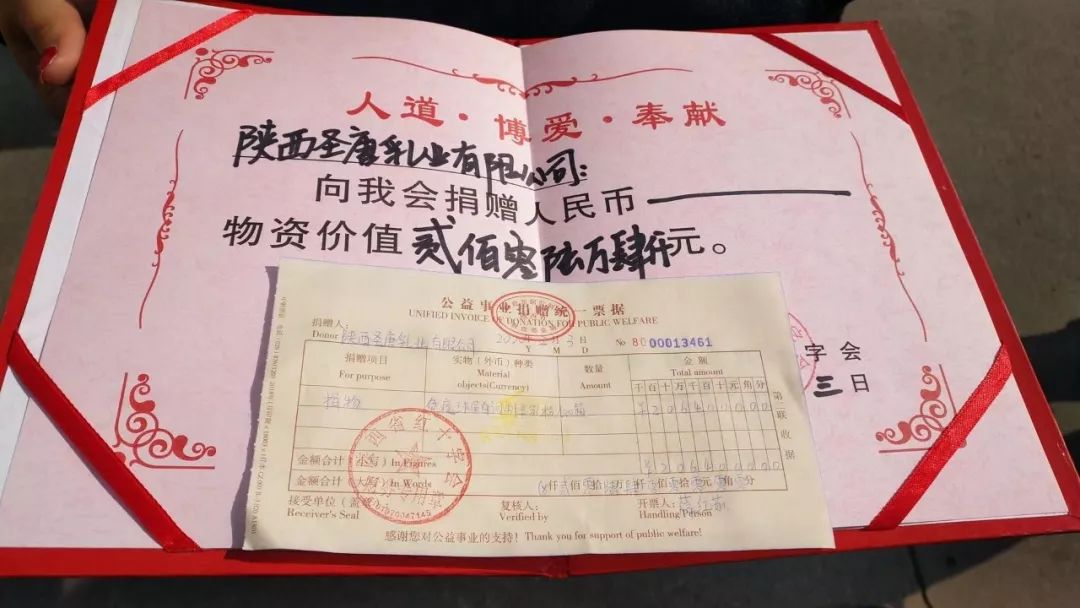 人道·博爱·奉献
陕西圣唐乳业有限公司：
向我会捐赠人民币
物资价值贰佰零陆万肆仟元。
字会
三日
公益事业捐赠统一票据
UNIFIED INVOICE OF DONATION FOR PUBLIC WELFARE
捐赠人：
Donor 陕西圣唐乳业有限公司 月3日 № 8000013461
Y M D
捐赠项目 实物（外币）种类 数量 金额
For purpose Material objects(Currency) Amount Total amount
千百十万千百十元角分
捐物
¥206400000
第二联收据
金额合计（小写）In Figures ¥206400000
金额合计（大写）In Words
接受单位（盖章） 复核人： 开票人：
Receiver's Seal Verified by Handling Person
感谢您对公益事业的支持！Thank you for support of public welfare!